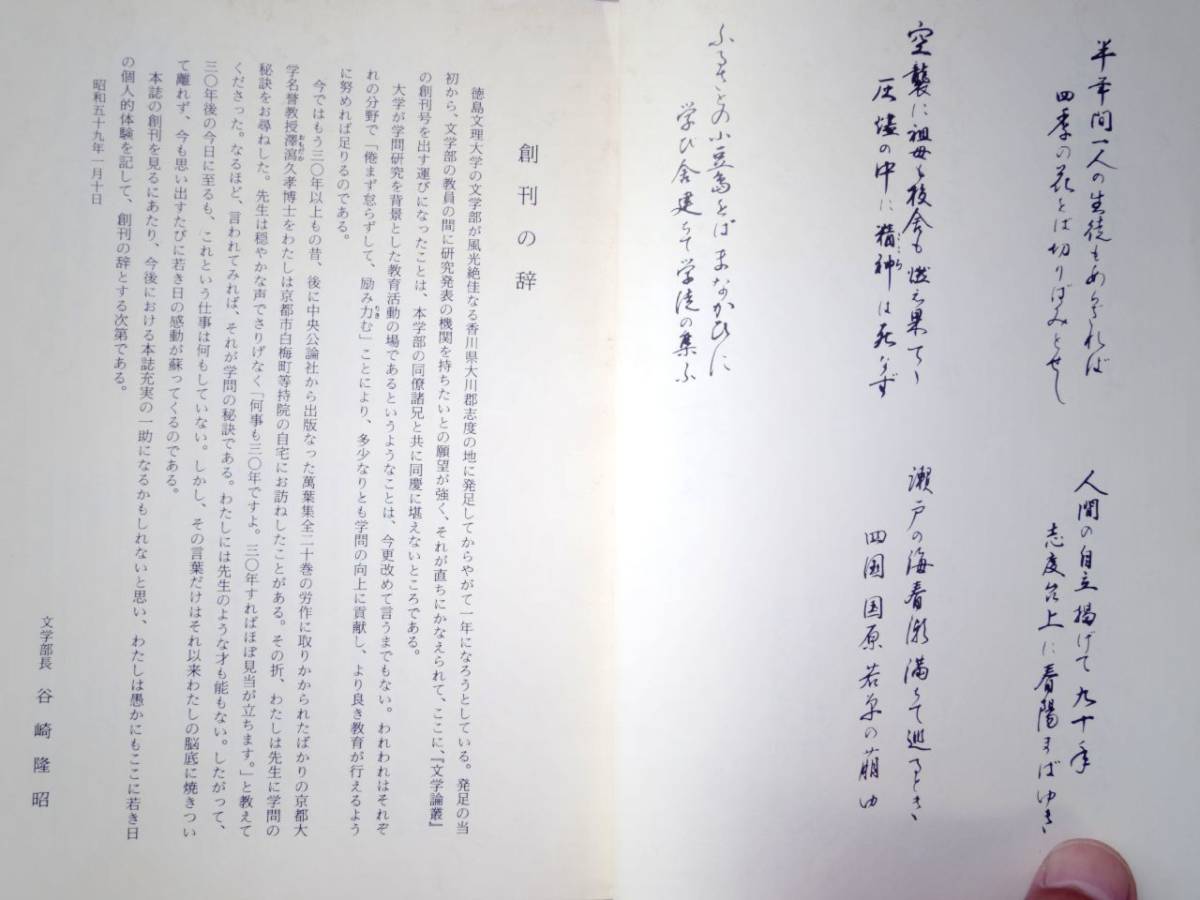 半年間一人の生徒もあらざれば
四季の花をば切りばみとせし
空襲に祖母も校舎も燃え果てゝ
灰燼の中に精神は死なず
こころ
ふるさとの小豆島をばまなかひに
学び舎建ちて学徒の集ふ
人間の自立掲げて九十年
志度台上に春陽まばゆき
瀬戸の海春潮満ちて逝るとき
四国国原若草の萠ゆ
創刊の辞
徳島文理大学の文学部が風光絶佳なる香川県大川郡志度の地に発足してからやがて一年になろうとしている。発足の当
初から、文学部の教員の間に研究発表の機関を持ちたいとの願望が強く、それが直ちにかなえられて、ここに、『文学論叢』
の創刊号を出す運びになったことは、本学部の同僚諸兄と共に同慶に堪えないところである。
大学が学問研究を背景とした教育活動の場であるというようなことは、今更改めて言うまでもない。われわれはそれぞ
れの分野で「倦まず怠らずして、励み力む」ことにより、多少なりとも学問の向上に貢献し、より良き教育が行えるよう
に努めれば足りるのである。
今ではもう三〇年以上もの昔、後に中央公論社から出版なった萬葉集全二十巻の労作に取りかかられたばかりの京都大
学名誉教授澤瀉久孝博士をわたしは京都市白梅町等持院の自宅にお訪ねしたことがある。その折、わたしは先生に学問の
おもだか
秘訣をお尋ねした。先生は穏やかな声でさりげなく「何事も三〇年ですよ。三〇年すればほぼ見当が立ちます。」と教えて
くださった。なるほど、言われてみれば、それが学問の秘訣である。わたしには先生のような才も能もない。したがって、
三〇年後の今日に至るも、これという仕事は何もしていない。しかし、その言葉だけはそれ以来わたしの脳底に焼きつい
て離れず、今も思い出すたびに若き日の感動が蘇ってくるのである。
本誌の創刊を見るにあたり、今後における本誌充実の一助になるかもしれないと思い、わたしは愚かにもここに若き日
の個人的体験を記して、創刊の辞とする次第である。
昭和五十九年一月十日
文学部長 谷崎隆昭